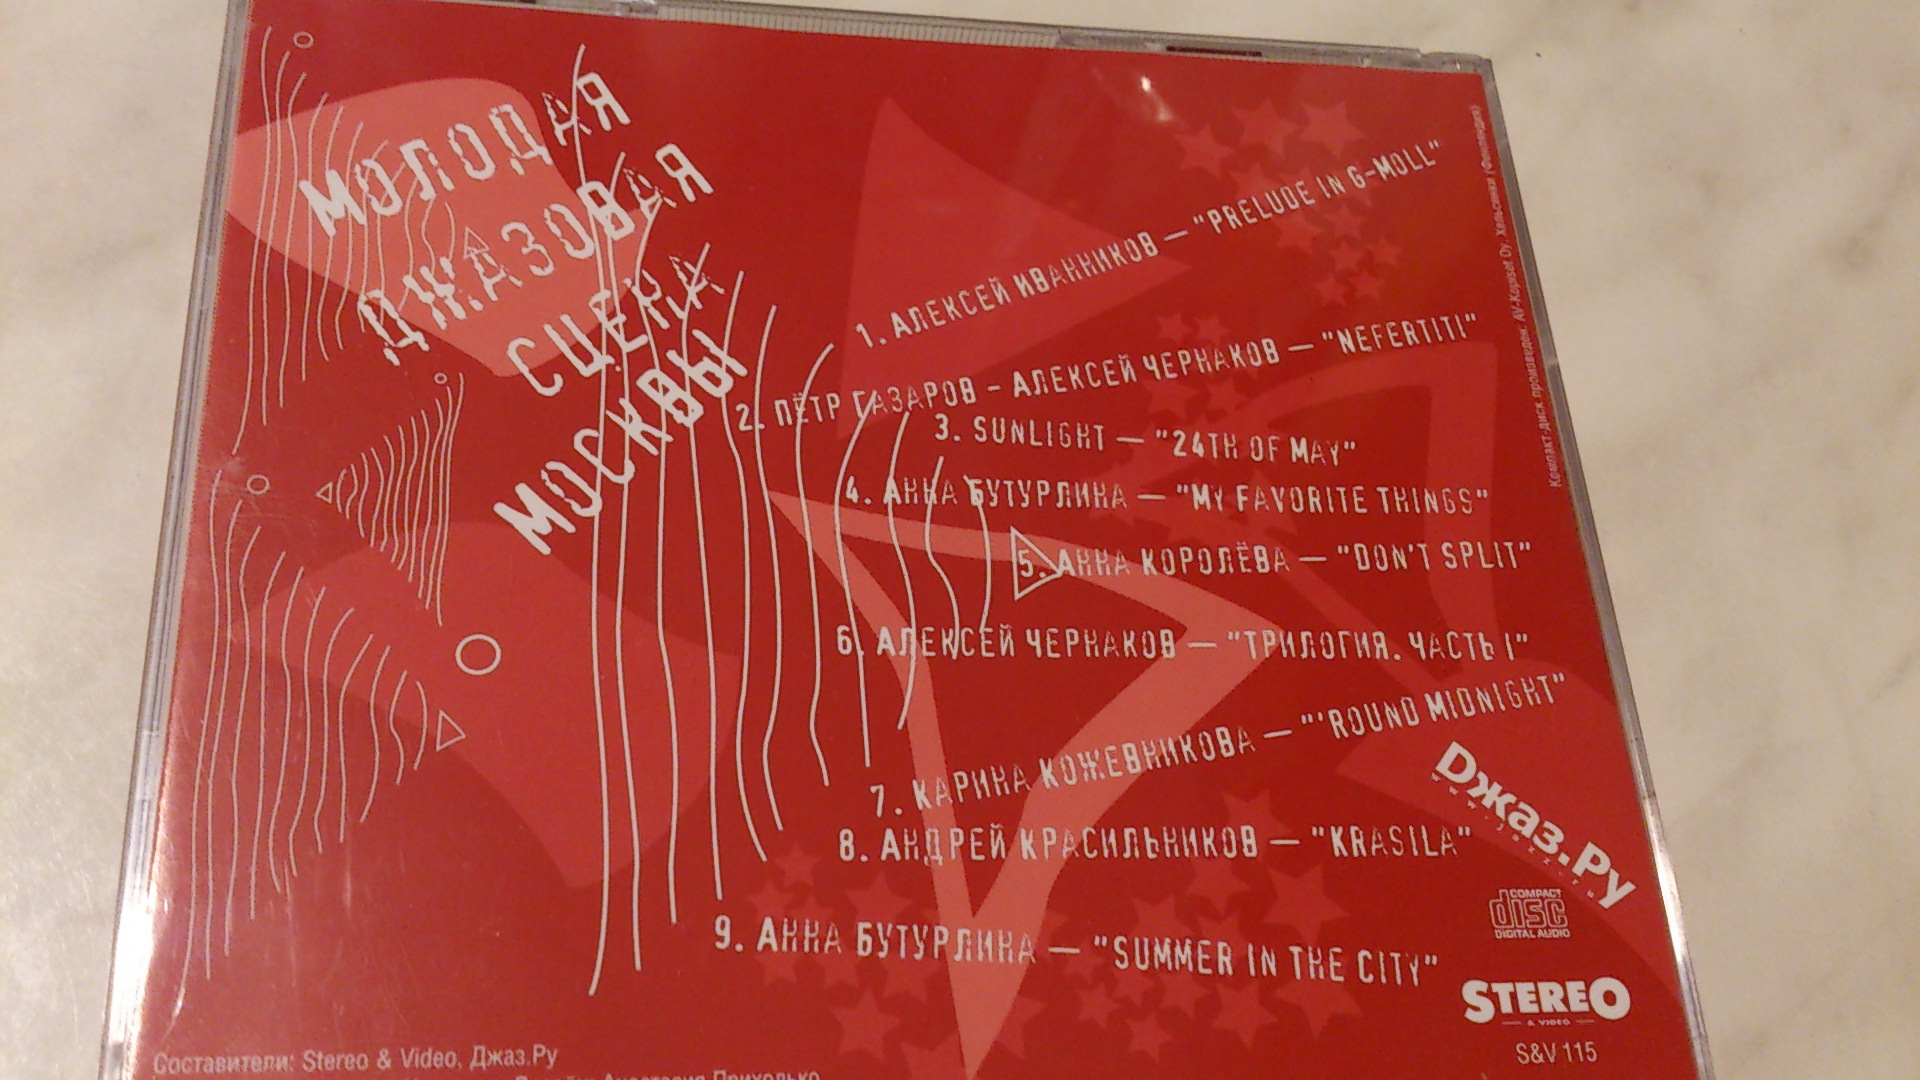 МОЛОДАЯ
ДЖАЗОВАЯ
СЦЕНА
МОСКВЫ
1. АЛЕКСЕЙ ИВАННИКОВ — "PRELUDE IN G-MOLL"
2. ПЁТР ГАЗАРОВ - АЛЕКСЕЙ ЧЕРНАКОВ — "NEFERTITI"
3. SUNLIGHT — "24TH OF MAY"
4. АННА БУТУРЛИНА — "MY FAVORITE THINGS"
5. АННА КОРОЛЁВА — "DON'T SPLIT"
6. АЛЕКСЕЙ ЧЕРНАКОВ — "ТРИЛОГИЯ. ЧАСТЬ I"
7. КАРИНА КОЖЕВНИКОВА — "'ROUND MIDNIGHT"
8. АНДРЕЙ КРАСИЛЬНИКОВ — "KRASILA"
9. АННА БУТУРЛИНА — "SUMMER IN THE CITY"
Компакт-диск произведен: AV-Kopiset Oy, Хельсинки (Финляндия)
Джаз.Ру
COMPACT
disc
DIGITAL AUDIO
STEREO
& VIDEO
S&V 115
Составители: Stereo & Video, Джаз.Ру
Анастасия Приходько